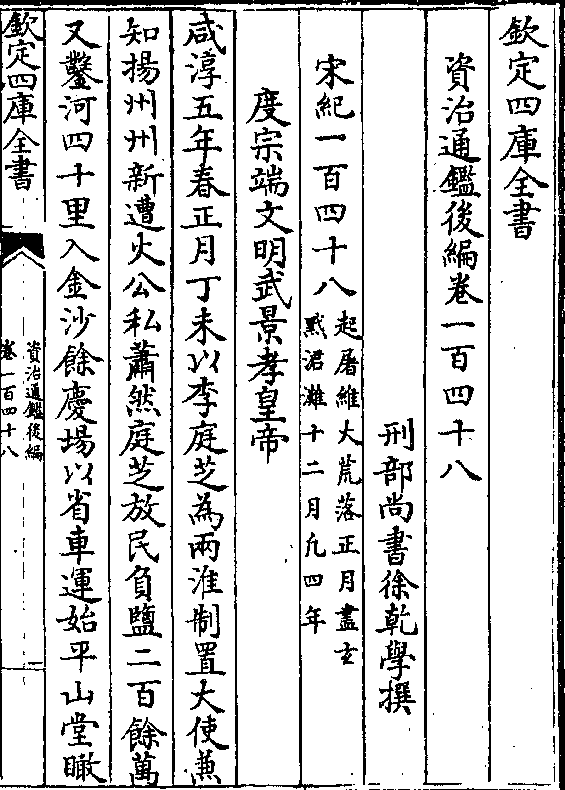 欽定四庫全書
資治通鑑後編卷一百四十八
刑部尚書徐乾學撰
宋紀一百四十八起屠維大荒落正月盡玄
黓涒灘十二月凡四年
度宗端文明武景孝皇帝
咸淳五年春正月丁未以李庭芝為兩淮制置大使兼
知揚州州新遭火公私蕭然庭芝放民負鹽二百餘萬
又鑿河四十里入金沙餘慶場以省車運始平山堂瞰
欽定四庫全書
資治通鑑後編
卷一百四十八
一